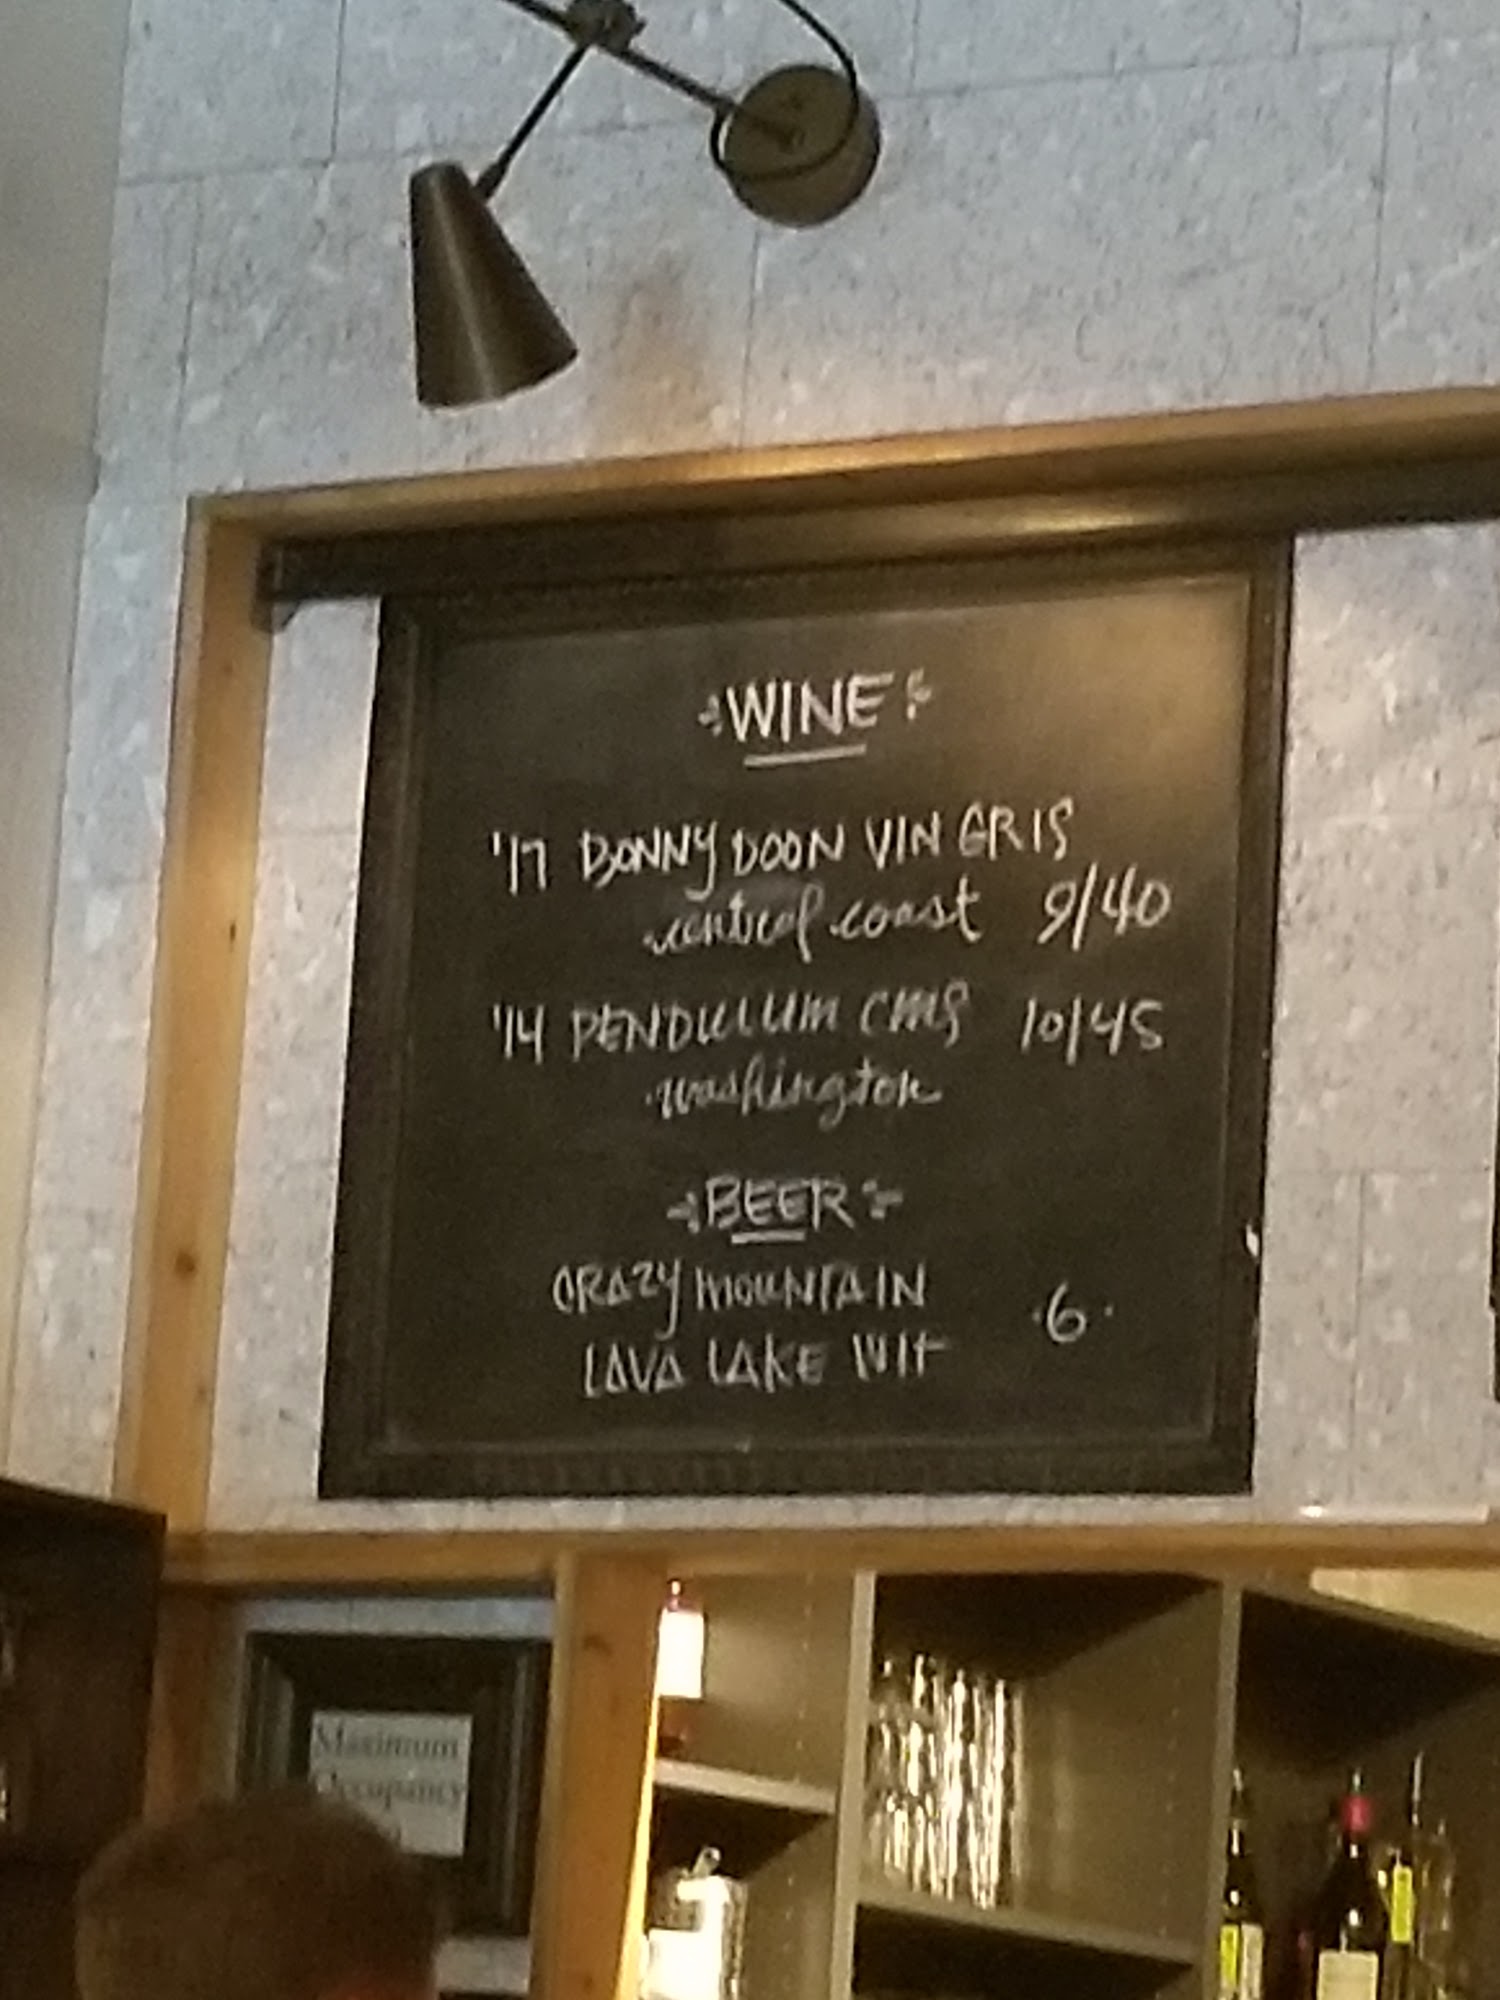 WINE
'17 BONNY DOON VIN GRIS
central coast 9/40
'14 PENDULUM CMS 10/45
washington
BEER
CRAZY MOUNTAIN
LAVA LAKE WIT
6
Maximum
Occupancy